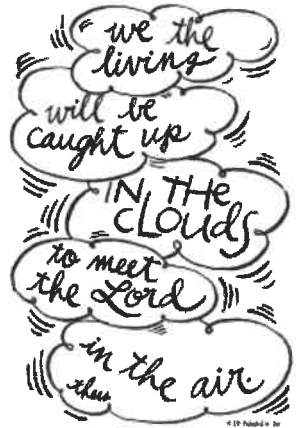 we the
living
will be
caught up
IN THE
CLOUDS
to meet
the Lord
in the air.
thess